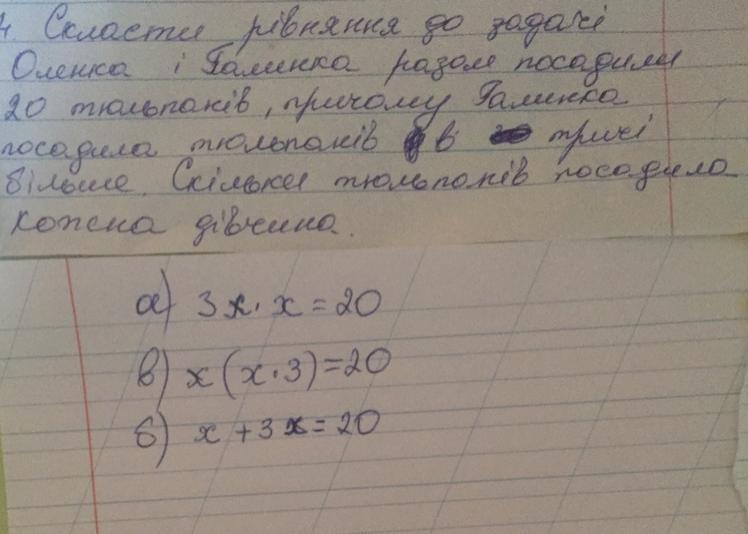 4. Скласти рівняння до задачі
Оленка і Галинка разом посадили
20 тюльпанів, причому Галинка
посадила тюльпанів в тричі
більше. Скільки тюльпанів посадила
кожна дівчина.
а) 3x·x=20
в) x(x·3)=20
б) x+3x=20